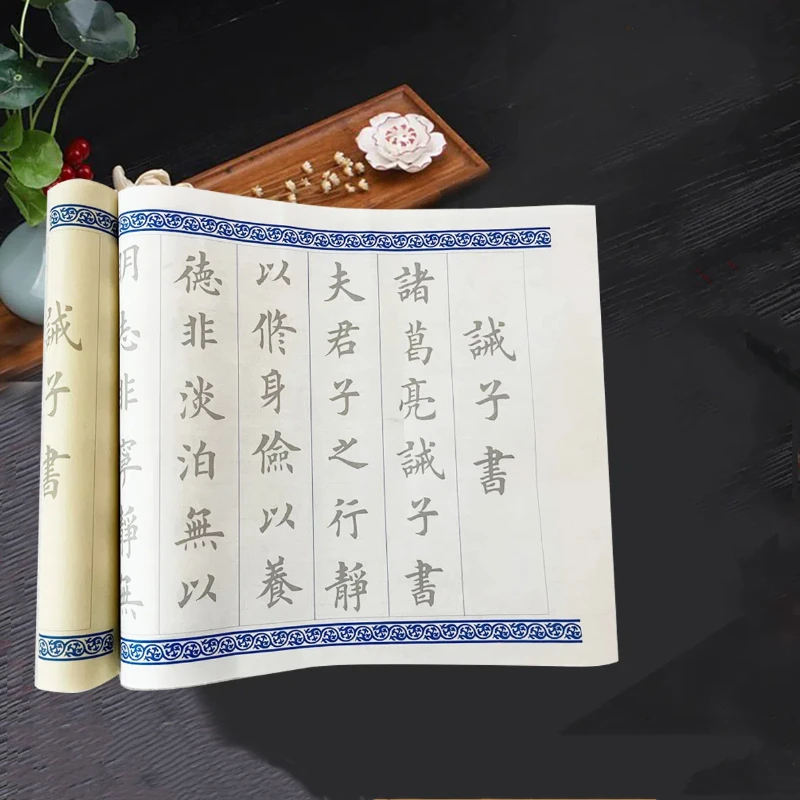 誡子書
諸葛亮誡子書
夫君子之行靜
以修身儉以養
德非淡泊無以
明志非寧靜無
誡子書